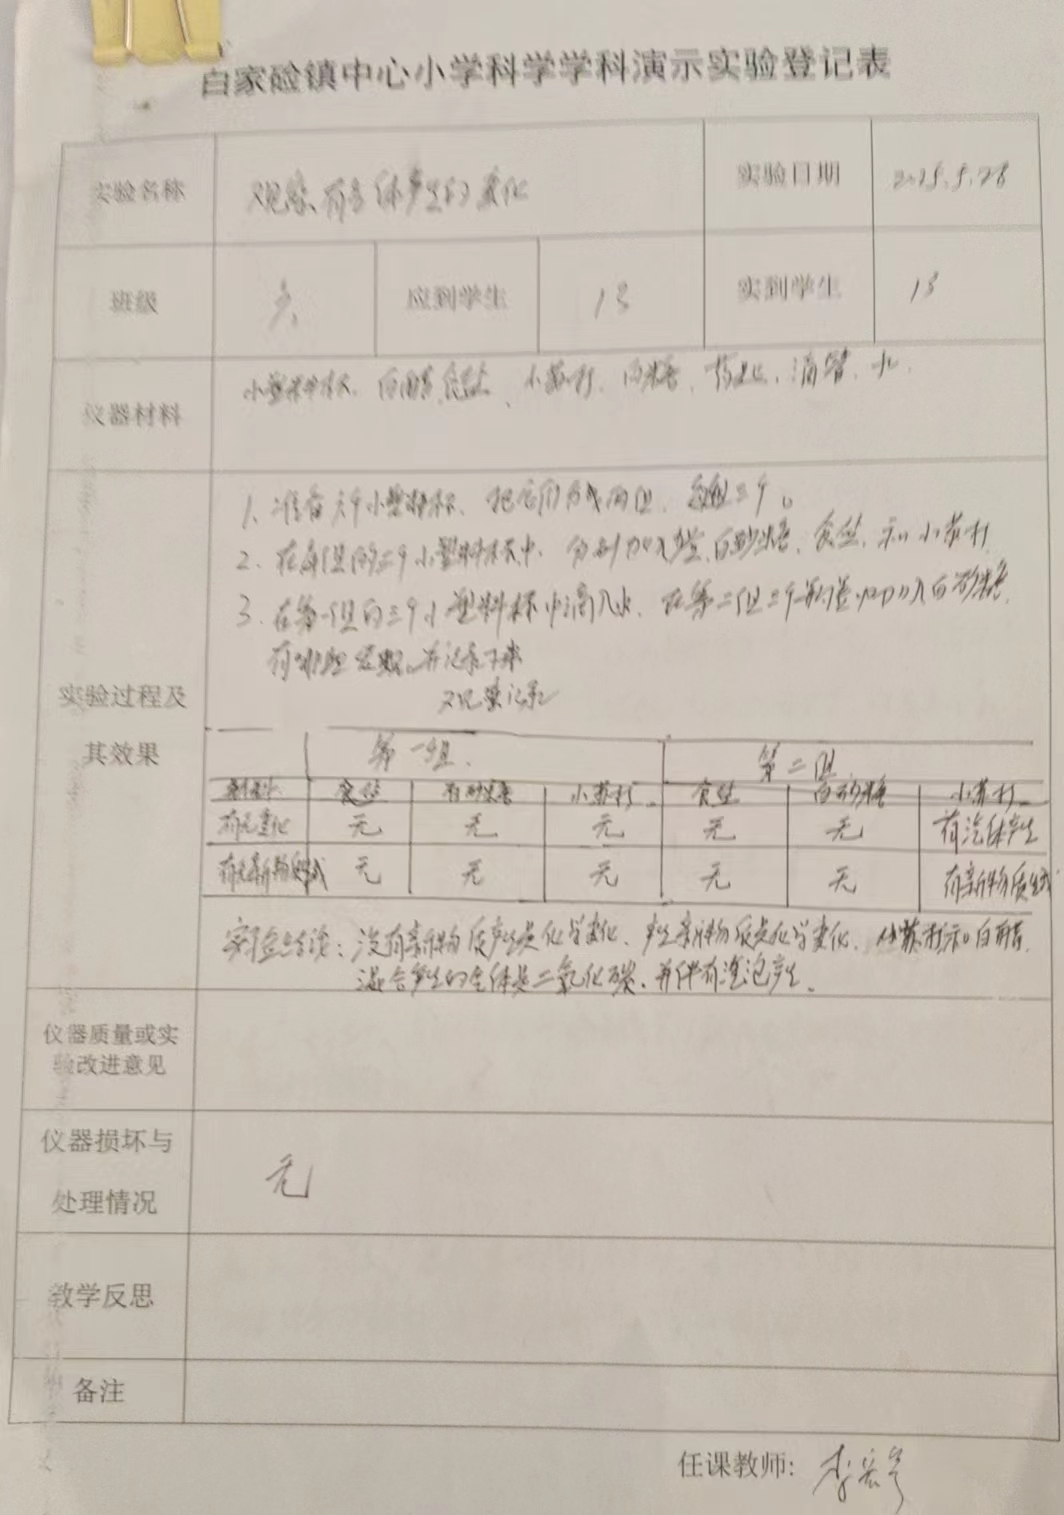 白家硷镇中心小学科学学科演示实验登记表
实验名称 观察有气体产生的变化 实验日期
班级 六 应到学生 13 实到学生 13
仪器材料 小塑料杯、白醋、食盐、小苏打、白糖、药匙、滴管、水
1、准备六个小塑料杯、把它们分成两组、每组三个。
2、在每组的三个小塑料杯中、分别加入 白砂糖、食盐、和小苏打
3、在第一组的三个小塑料杯中滴入水、在第二组三个 加入白砂糖、
有 并记录下来
实验过程及
其效果
观察记录
第一组 第二组
材料 食盐 白砂糖 小苏打 食盐 白砂糖 小苏打
有无变化 无 无 无 无 无 有汽体产生
有无新物质生成 无 无 无 无 无 有新物质生成
实验结论：没有新物质产生 化学变化、产生新物质是化学变化、小苏打和白醋
混合产生的气体是二氧化碳、并伴有汽泡产生。
仪器质量或实
验改进意见
仪器损坏与
处理情况
无
教学反思
备注
任课教师: